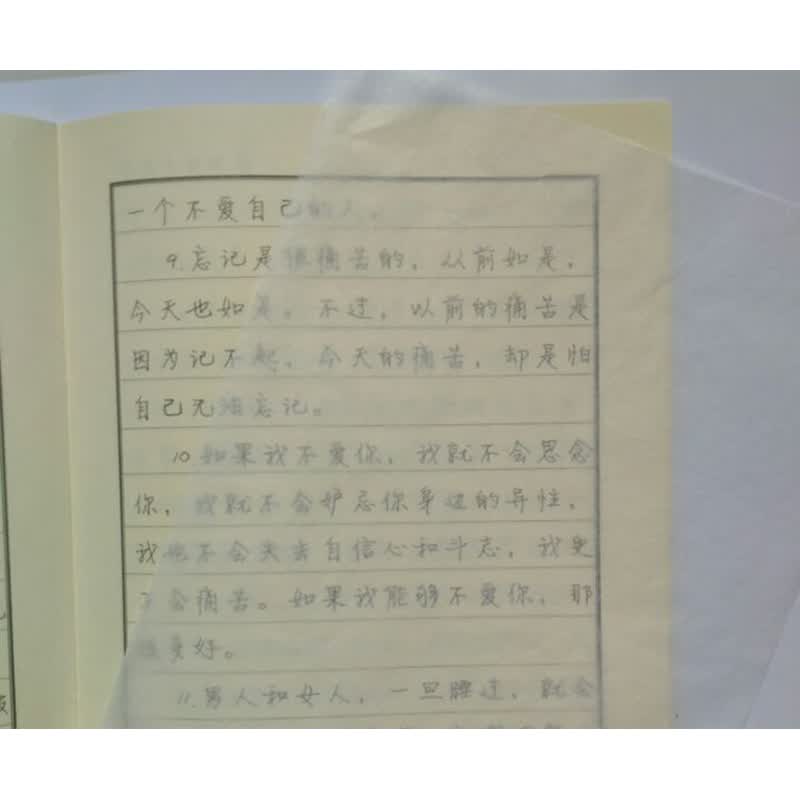 一个不爱自己的人。
9.忘记是很痛苦的,从前如是,
今天也如是。不过,以前的痛苦是
因为记不起,今天的痛苦,却是怕
自己无法忘记。
10 如果我不爱你,我就不会思念
你,我就不会妒忌你身边的异性,
我也不会失去自信心和斗志,我更
不会痛苦。如果我能够不爱你,那
该多好。
11.男人和女人,一旦睡过,就会